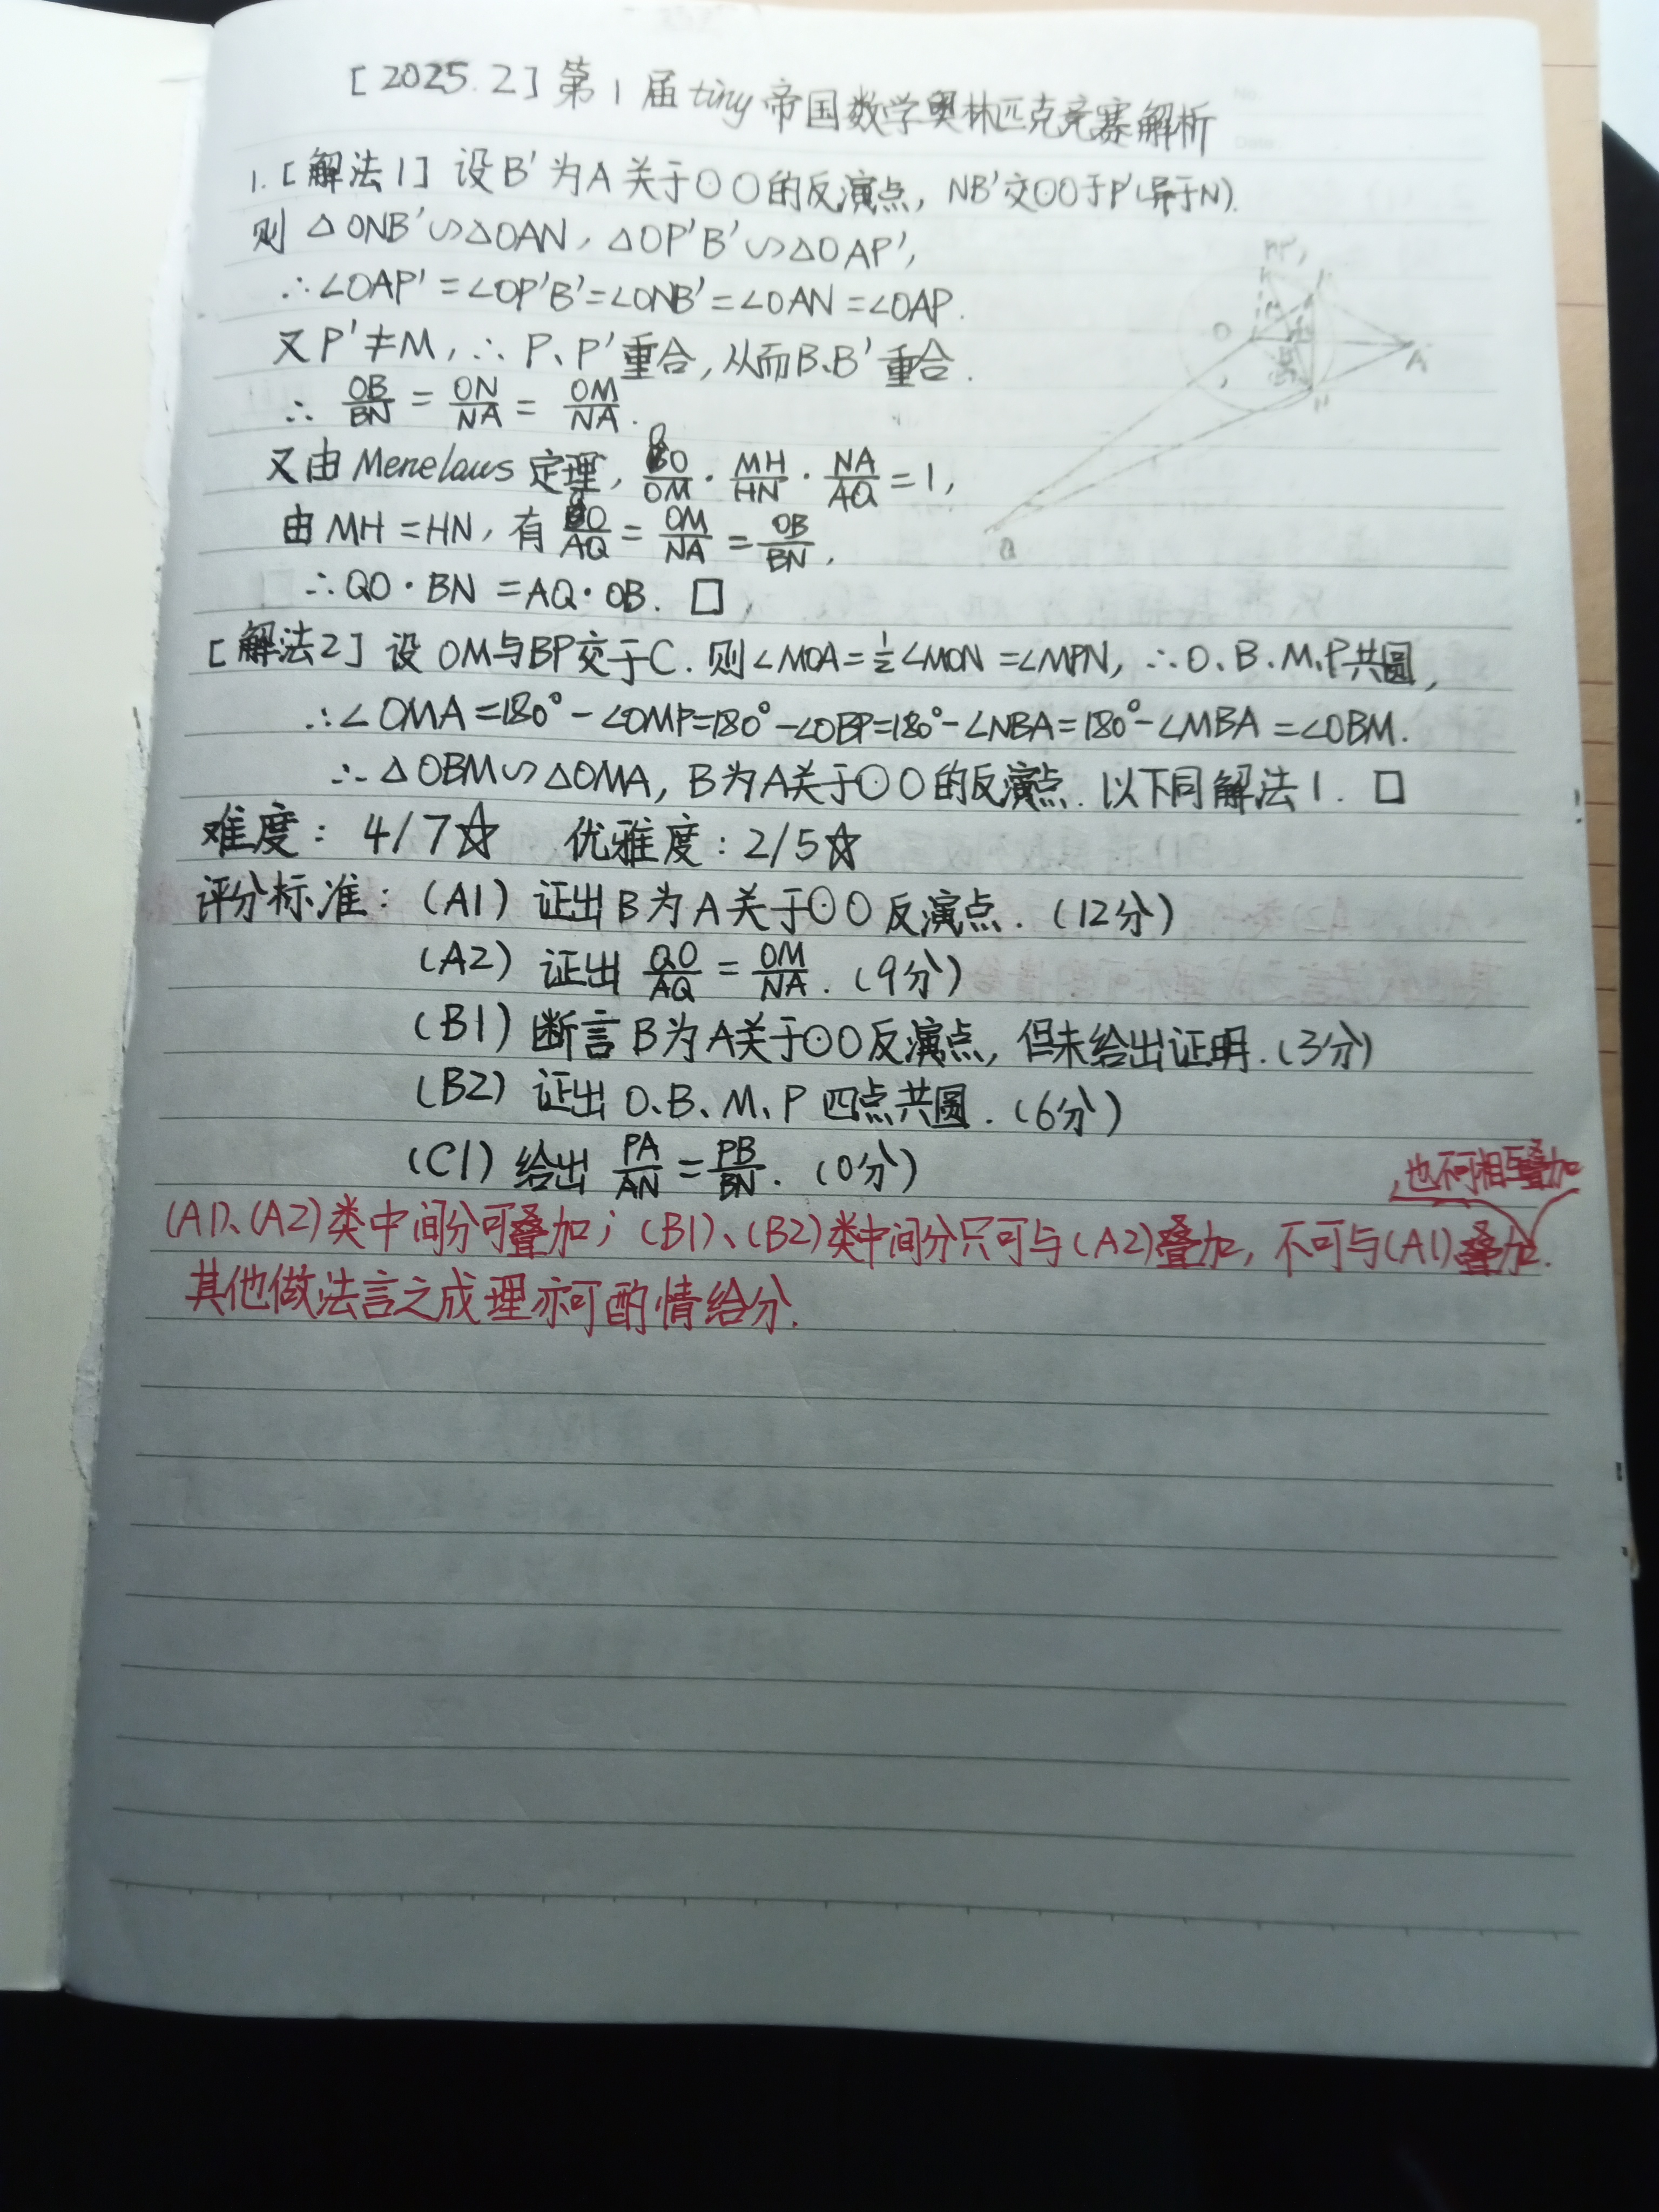 [2025.2]第1届tiny帝国数学奥林匹克竞赛解析
1.[解法1] 设B'为A关于⊙O的反演点, NB'交⊙O于P'(异于N).
则 △ONB'∽△OAN, △OP'B'∽△OAP',
∴∠OAP'=∠OP'B'=∠ONB'=∠OAN=∠OAP.
又P'≠M, ∴P、P'重合, 从而B、B'重合.
∴ OB/BN = ON/NA = OM/NA.
又由Menelaus定理, QO/OM · MH/HN · NA/AQ = 1,
由MH=HN, 有 QO/AQ = OM/NA = OB/BN,
∴QO·BN=AQ·OB. □
[解法2] 设OM与BP交于C. 则∠MOA=1/2∠MON=∠MPN, ∴O、B、M、P共圆,
∴∠OMA=180°-∠OMP=180°-∠OBP=180°-∠NBA=180°-∠MBA=∠OBM.
∴△OBM∽△OMA, B为A关于⊙O的反演点. 以下同解法1. □
难度: 4/7☆ 优雅度: 2/5☆
评分标准: (A1) 证出B为A关于⊙O反演点. (12分)
(A2) 证出 QO/AQ = OM/NA. (9分)
(B1) 断言B为A关于⊙O反演点, 但未给出证明. (3分)
(B2) 证出O、B、M、P四点共圆. (6分)
(C1) 给出 PA/AN = PB/BN. (0分)
(A1)、(A2)类中间分可叠加; (B1)、(B2)类中间分只可与(A2)叠加, 不可与(A1)叠加, 也不可相互叠加.
其他做法言之成理亦可酌情给分.
O
A
N
Q